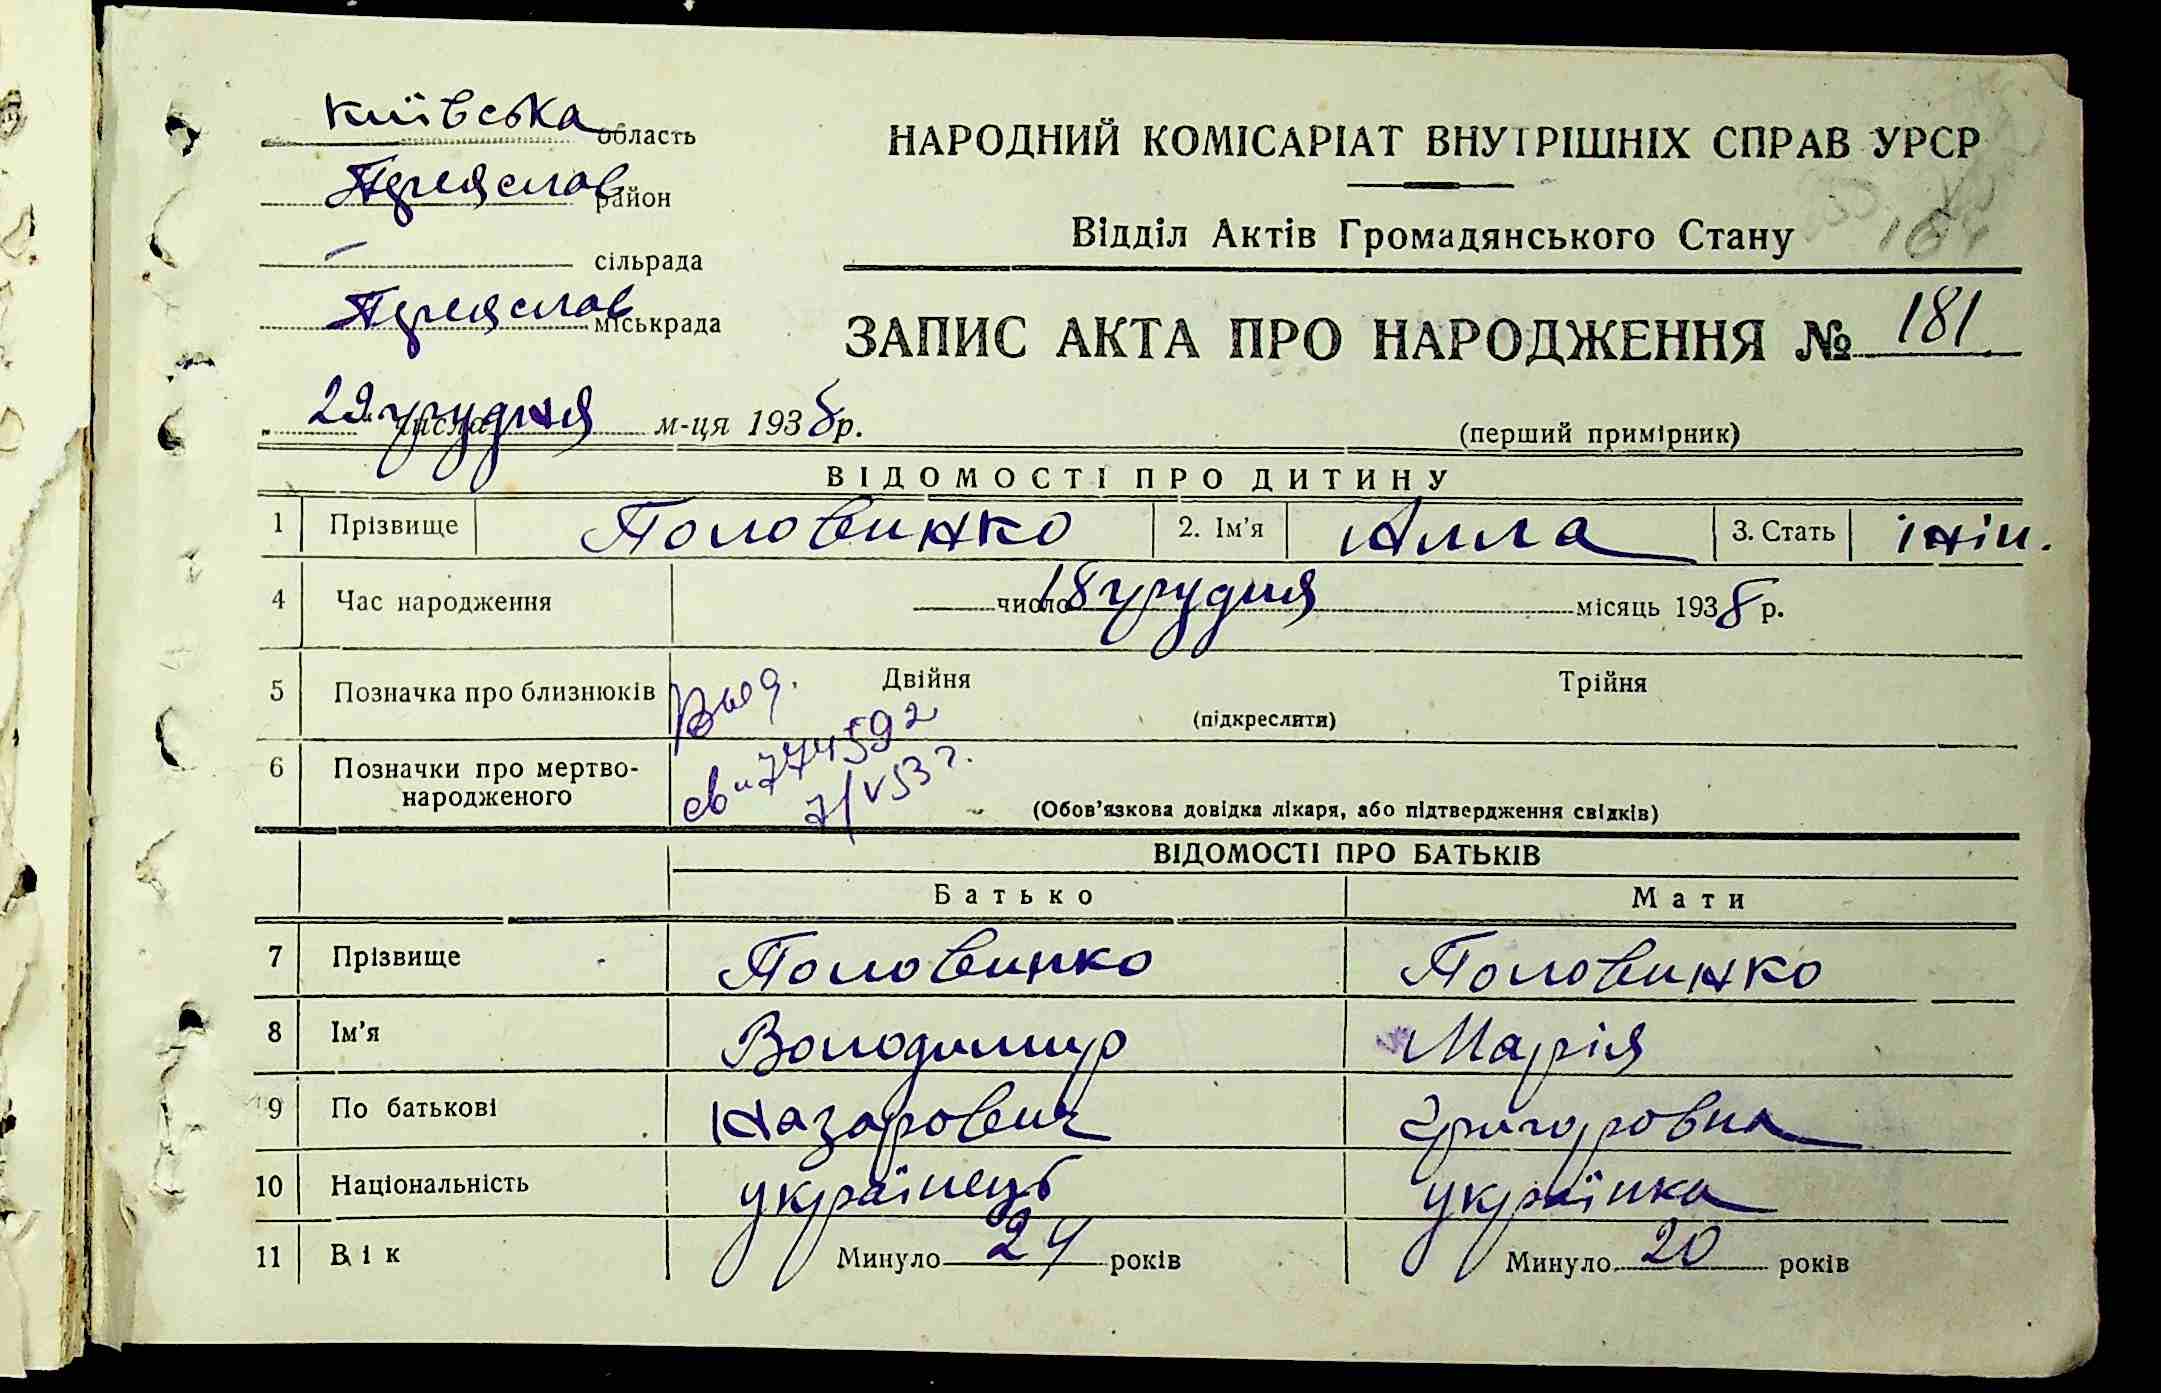 Київська область
Переяслав район
– сільрада
Переяслав міськрада
НАРОДНИЙ КОМІСАРІАТ ВНУТРІШНІХ СПРАВ УРСР
Відділ Актів Громадянського Стану
164
ЗАПИС АКТА ПРО НАРОДЖЕННЯ № 181
„29" числа грудня м-ця 1938 р.
(перший примірник)
ВІДОМОСТІ ПРО ДИТИНУ
1 Прізвище Половинко 2. Ім'я Алла 3. Стать жін.
4 Час народження число 18 грудня місяць 1938 р.
5 Позначка про близнюків Двійня Трійня
(підкреслити)
Выд.
св 774592
7/V 53 г.
6 Позначки про мертво-
народженого
(Обов'язкова довідка лікаря, або підтвердження свідків)
ВІДОМОСТІ ПРО БАТЬКІВ
Батько Мати
7 Прізвище Половинко Половинко
8 Ім'я Володимир Марія
9 По батькові Назарович Григоровна
10 Національність українець українка
11 Вік Минуло 24 років Минуло 20 років